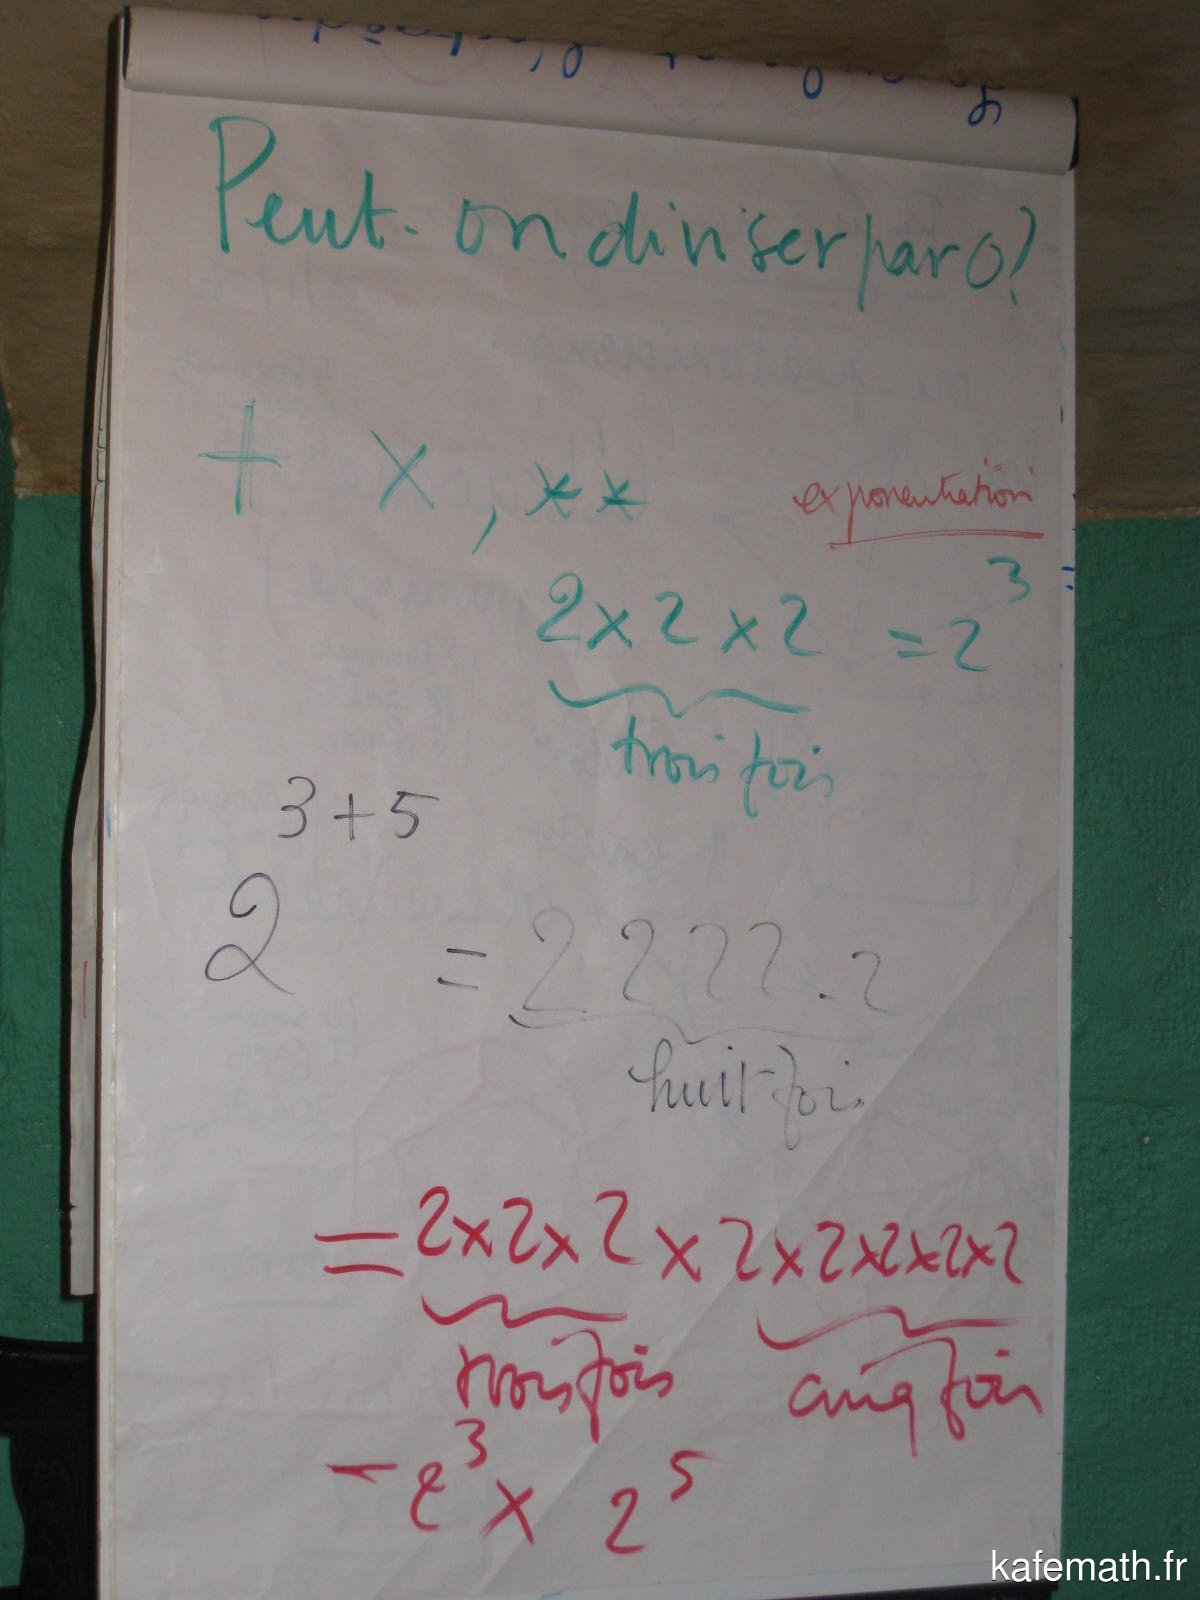 Peut-on diviser par 0?
+ × , **
exponentiation
2×2×2 = 2³
trois fois
2³⁺⁵ = 2 2 2 2 . 2
huit fois
= 2×2×2 × 2×2×2×2×2
trois fois cinq fois
= 2³ × 2⁵
kafemath.fr